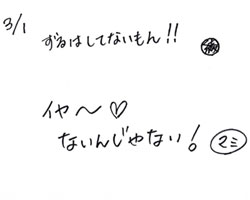 3/1
ずるはしてないもん!!
イヤ〜♡
ないんじゃない! マミ